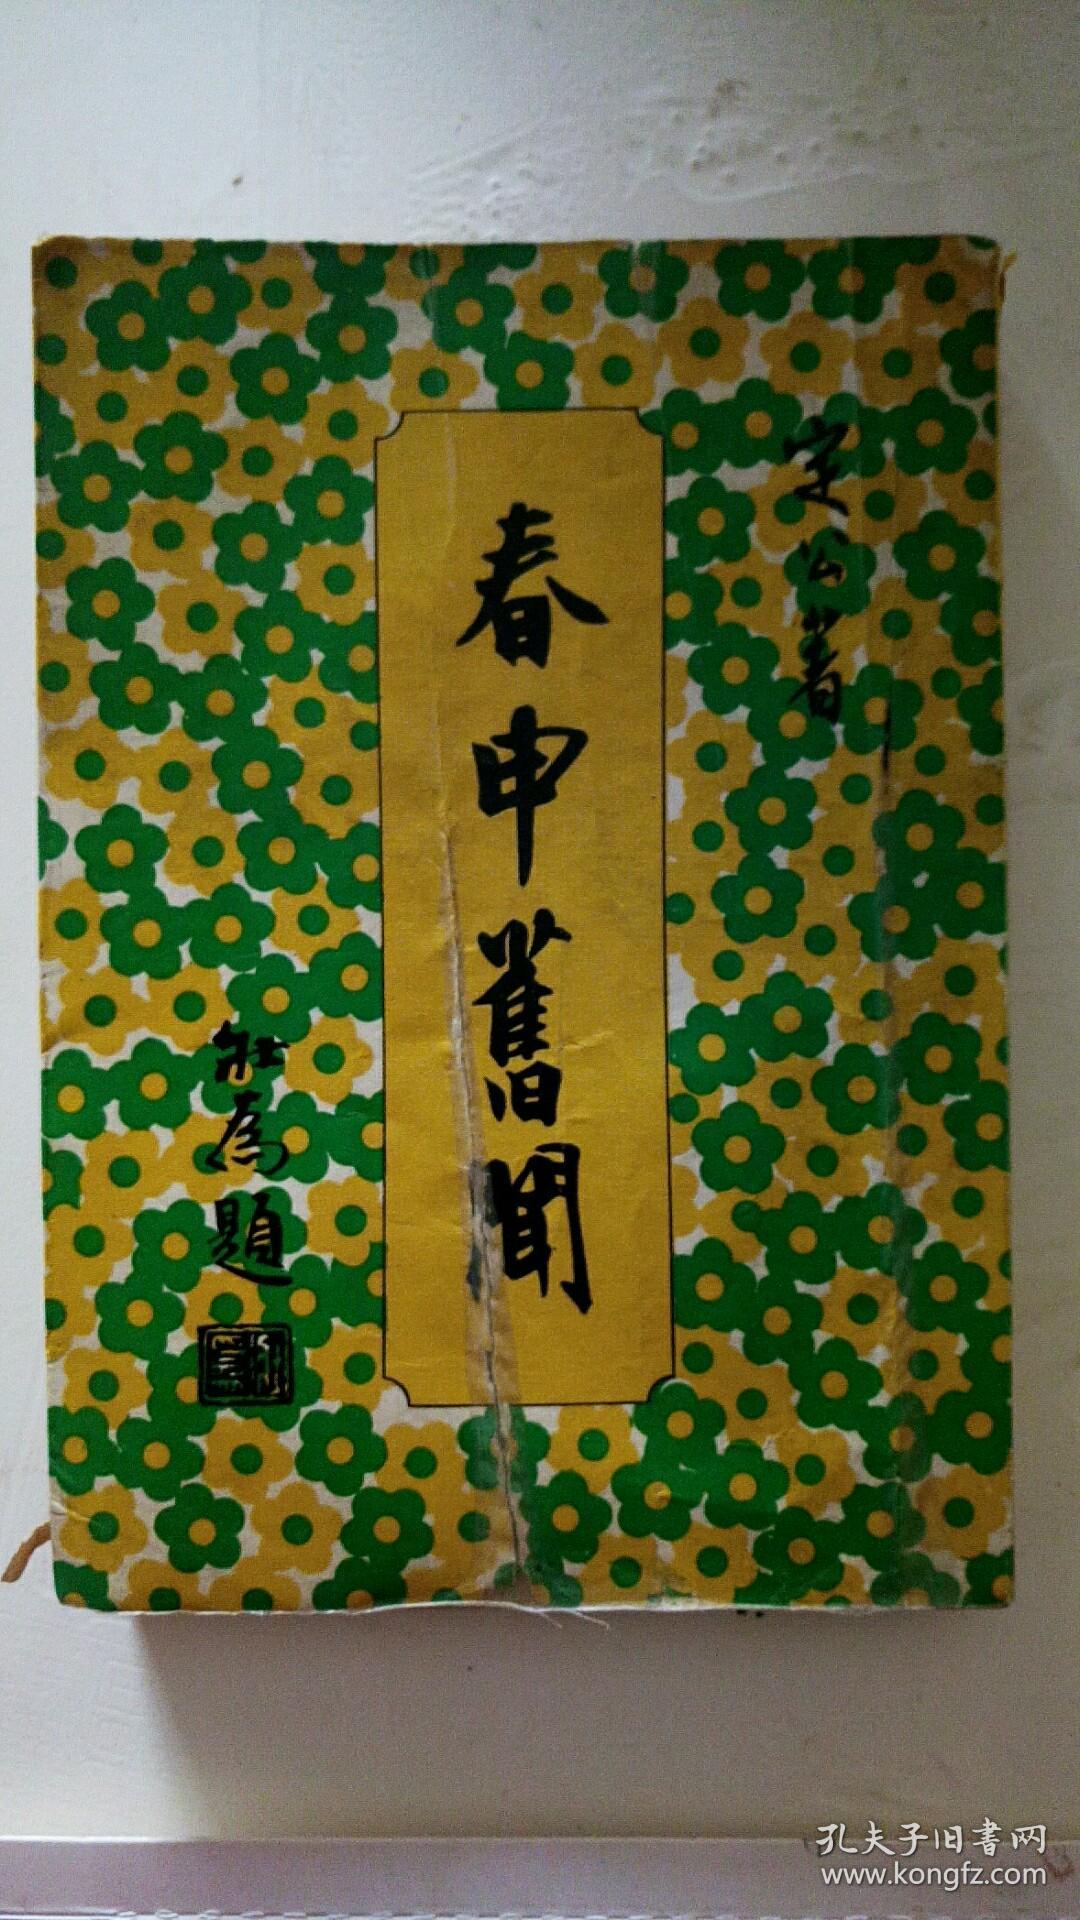 定公著
春申舊聞
莊為題
孔夫子旧书网
www.kongfz.com